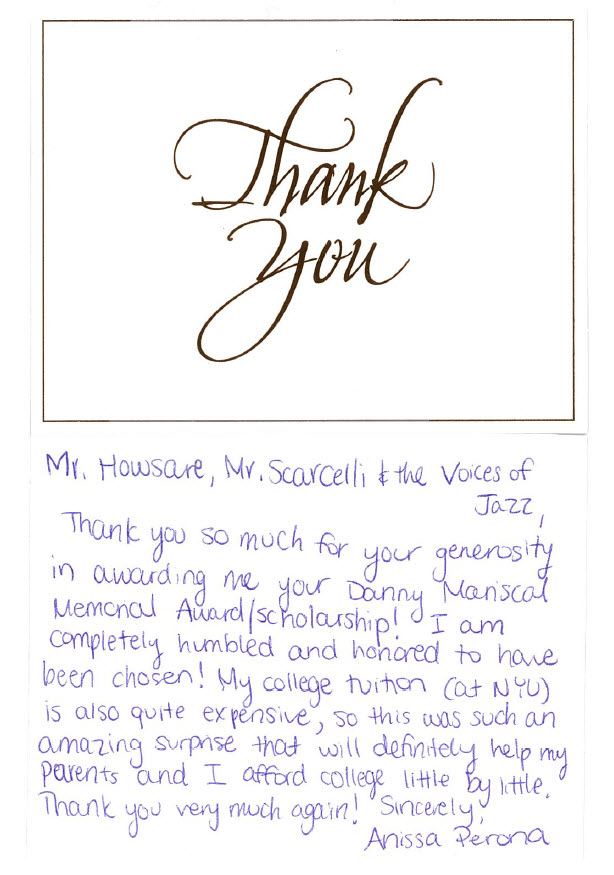 Thank
You
Mr. Howsare, Mr. Scarcelli & the Voices of
Jazz,
Thank you so much for your generosity
in awarding me your Danny Mariscal
Memorial Award/scholarship! I am
completely humbled and honored to have
been chosen! My college tuition (at NYU)
is also quite expensive, so this was such an
amazing surprise that will definitely help my
parents and I afford college little by little.
Thank you very much again! Sincerely,
Anissa Perona